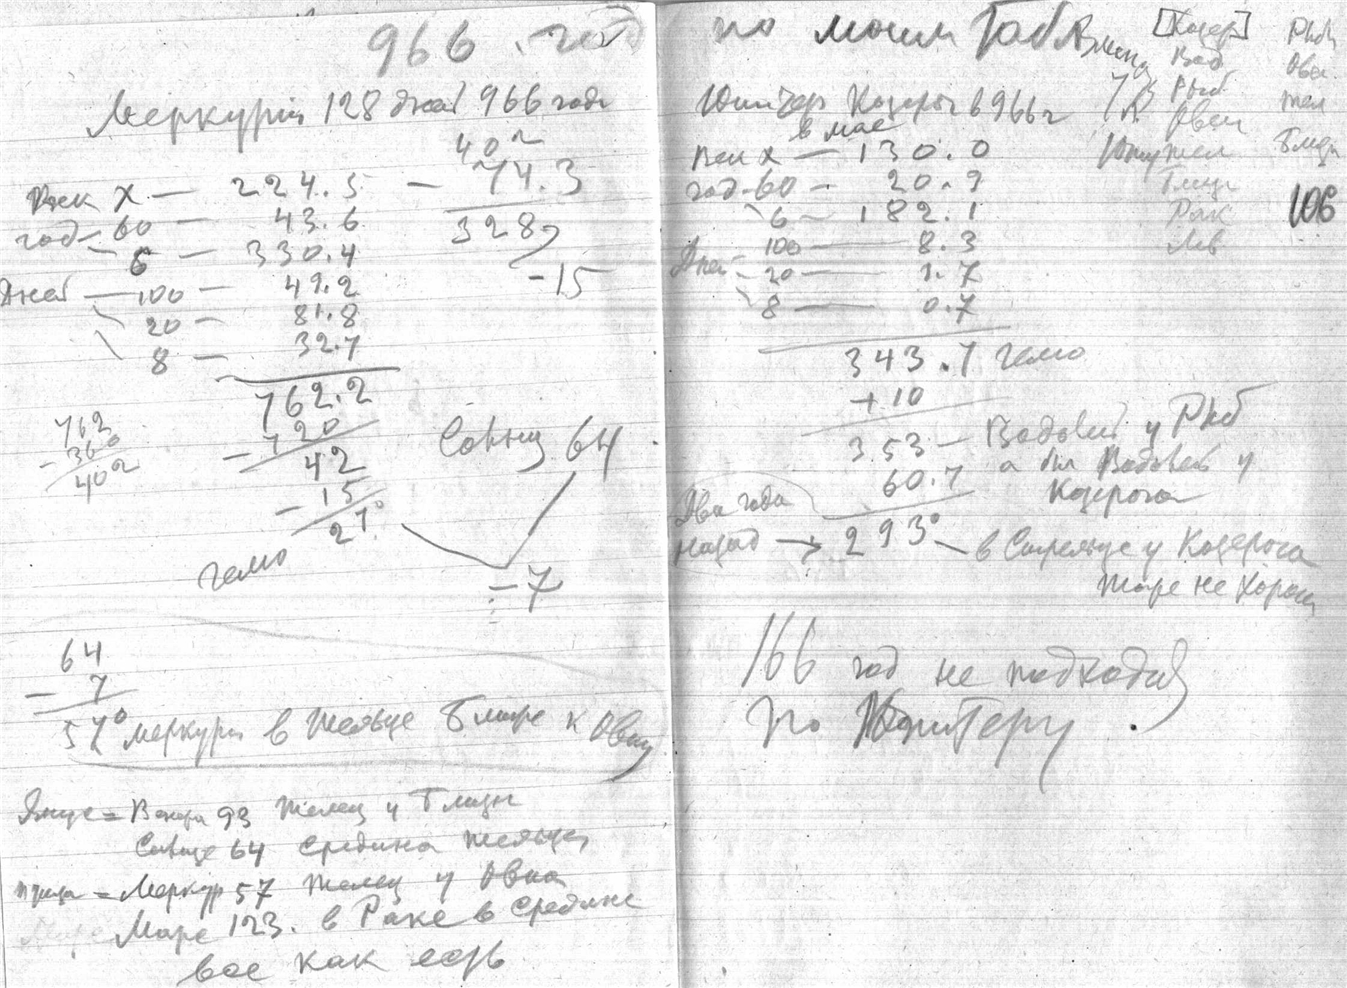 966. год
Меркурий 128 дней 966 года
век X — 224.5
год — 60 — 43.6
6 — 330.4
Дней — 100 — 49.2
20 — 81.8
8 — 32.7
762.2
- 720
42
- 15
27°
гелио
402
- 74.3
328
-15
762
- 360
402
Солнц 64
= -7
64
- 7
57° меркурий в тельце ближе к Овну
Венера 93 телец у Близн
Солнце 64 средина тельца
птица = Меркур 57 телец у Овна
Марс 123. в Раке в средине
все как есть
по моим Табл
Юпитер Козерог в 966 г
в мае
век X — 130.0
год - 60 - 20.9
6 — 182.1
Дней 100 — 8.3
20 — 1.7
8 — 0.7
343.7 гелио
+10
353 — Водолей у Рыб
а был Водолей у
Козерога
60.7
Два года
назад → 293° — в Стрельце у Козерога
тоже не хорош
166 год не подходит
по Юпитеру.
[Козер]
Вод
Рыб
Овен
тел
Близн
Рак
Лев
Рыб
Овен
тел
Близн
106